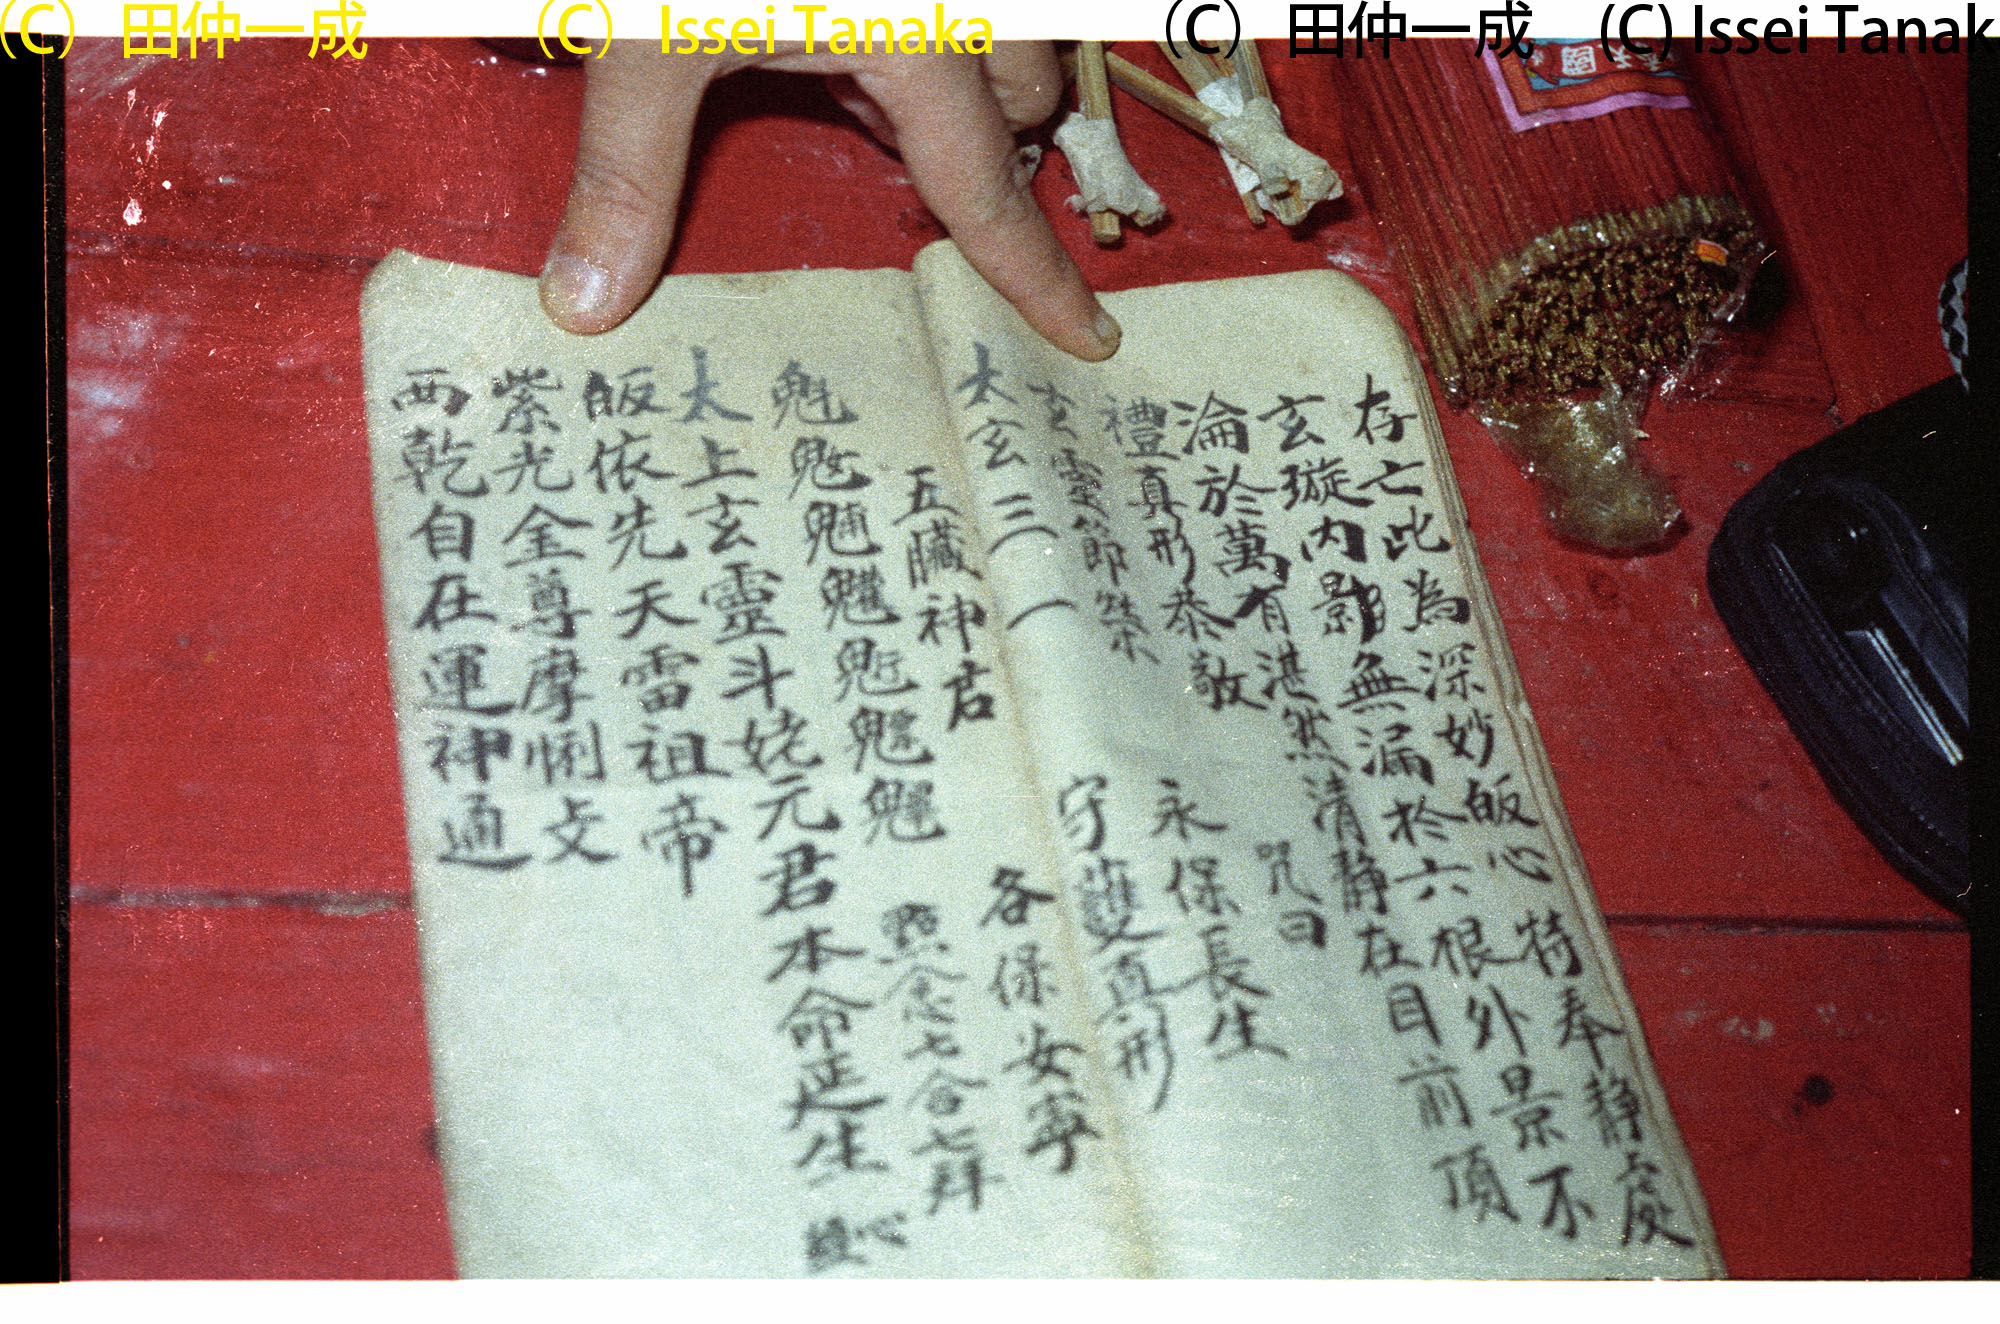 (C) 田仲一成 (C) Issei Tanaka (C) 田仲一成 (C) Issei Tanak
存亡此為深妙皈心特奉静處
玄璇内影無漏於六根外景不
淪於萬有湛然清静在目前頂
禮真形恭敬 咒曰
玄靈節榮 永保長生
太玄三一 守雙真形
五臟神君 各保安寧
魁𩲃𩵄 黙念七合七拜
太上玄靈斗姥元君本命延生心
皈依先天雷祖帝
紫光金尊摩悧攴
西乾自在運神通